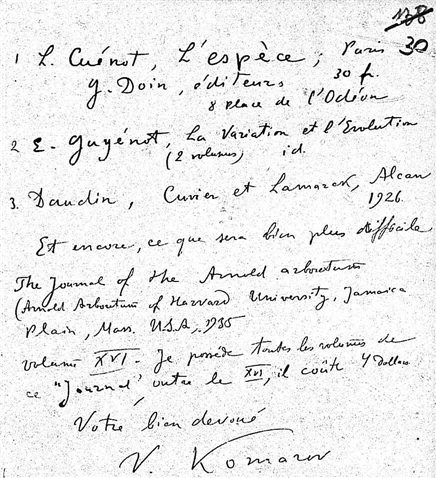 138
30
1 L. Cuénot, L'espèce, Paris
G. Doin, éditeurs 30 fr.
8 Place de l'Odéon
2 E. Guyénot, La Variation et l'Evolution
(2 volumes) id.
3. Daudin, Cuvier et Lamarck, Alcan
1926.
Et encore, ce que sera bien plus difficile
The Journal of the Arnold arboretum
(Arnold Arboretum of Harvard University, Jamaica
Plain, Mass. U.S.A., 1935
volume XVI. Je possède toutes les volumes de
ce "Journal" outre le XVI, il coûte 4 dollars
Votre bien devoué
V. Komarov